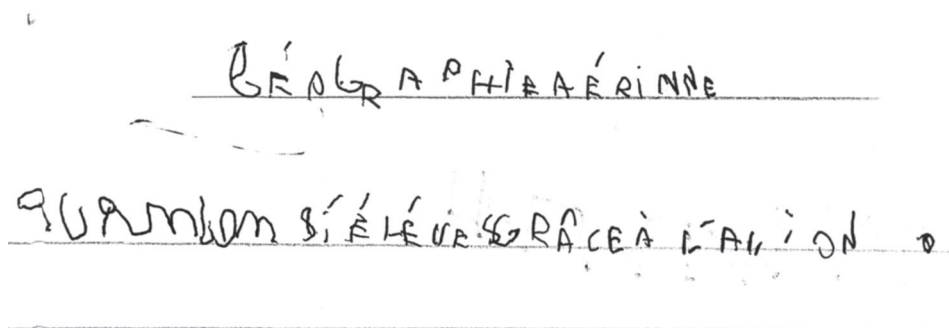 GÉOGRAPHIE AÉRINNE
QUANL'ON S'ÉLÉVE GRÂCE À L'AVION.